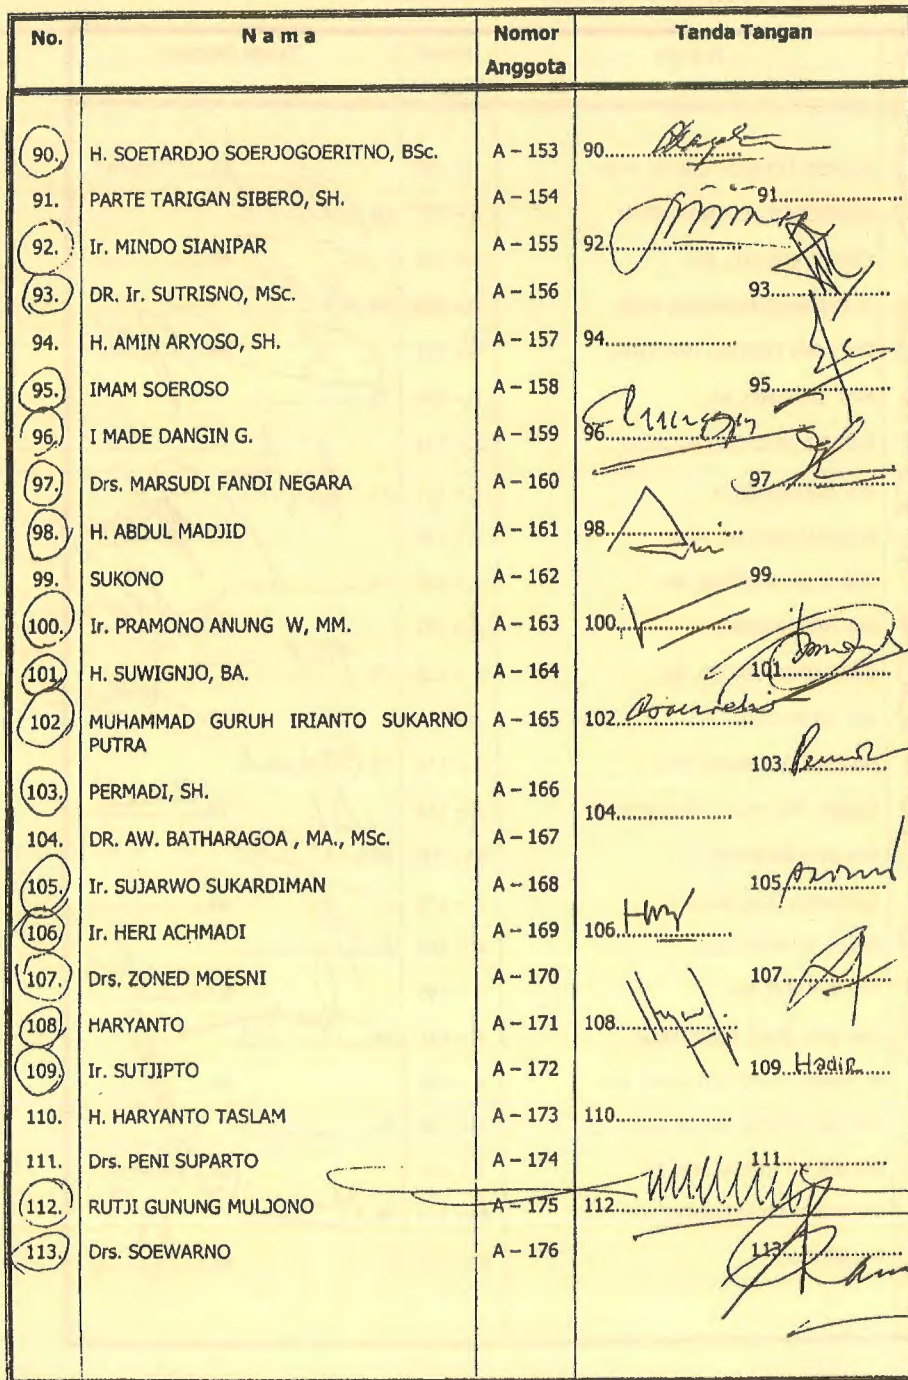 No. N a m a Nomor Anggota Tanda Tangan
90. H. SOETARDJO SOERJOGOERITNO, BSc. A – 153 90......................
91. PARTE TARIGAN SIBERO, SH. A – 154 91......................
92. Ir. MINDO SIANIPAR A – 155 92......................
93. DR. Ir. SUTRISNO, MSc. A – 156 93......................
94. H. AMIN ARYOSO, SH. A – 157 94......................
95. IMAM SOEROSO A – 158 95......................
96. I MADE DANGIN G. A – 159 96......................
97. Drs. MARSUDI FANDI NEGARA A – 160 97......................
98. H. ABDUL MADJID A – 161 98......................
99. SUKONO A – 162 99......................
100. Ir. PRAMONO ANUNG W, MM. A – 163 100......................
101. H. SUWIGNJO, BA. A – 164 101......................
102 MUHAMMAD GURUH IRIANTO SUKARNO A – 165 102......................
PUTRA
103......................
103. PERMADI, SH. A – 166
104......................
104. DR. AW. BATHARAGOA , MA., MSc. A – 167
105. Ir. SUJARWO SUKARDIMAN A – 168 105......................
106 Ir. HERI ACHMADI A – 169 106......................
107. Drs. ZONED MOESNI A – 170 107......................
108. HARYANTO A – 171 108......................
109. Ir. SUTJIPTO A – 172 109. Hadir
110. H. HARYANTO TASLAM A – 173 110......................
111. Drs. PENI SUPARTO A – 174 111......................
112. RUTJI GUNUNG MULJONO A – 175 112......................
113. Drs. SOEWARNO A – 176 113......................